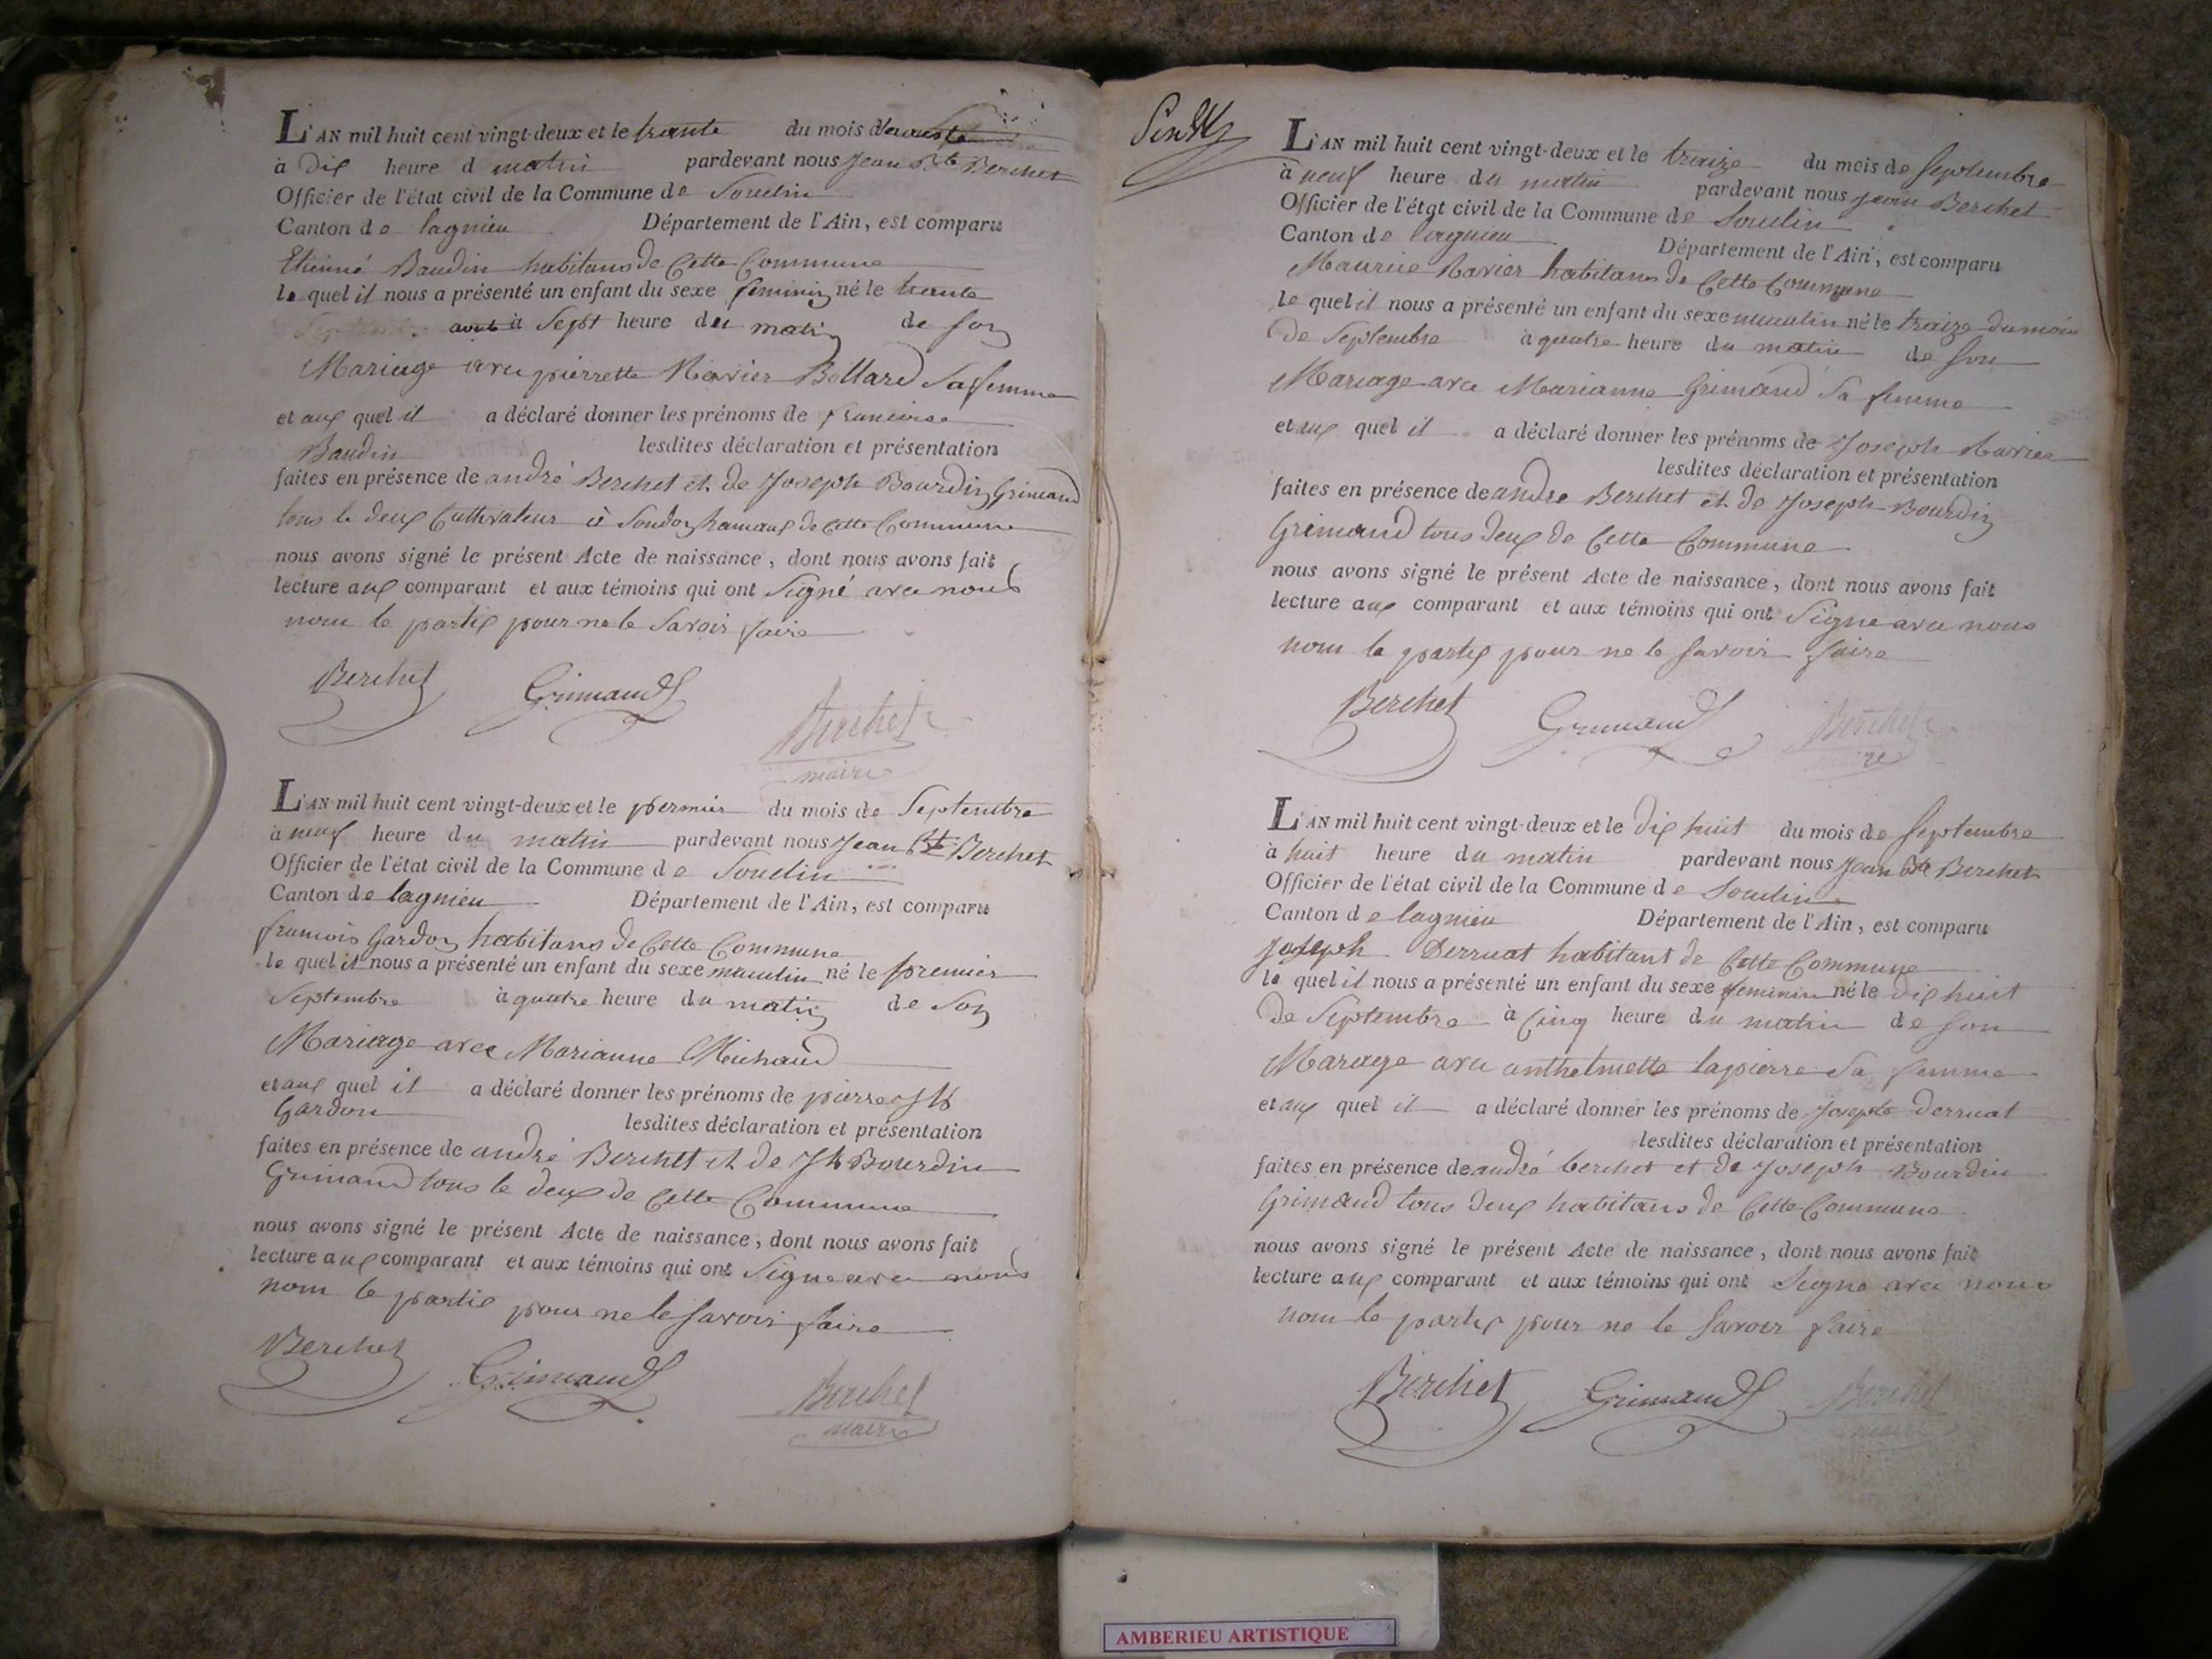 L'AN mil huit cent vingt-deux et le trante du mois d'auouste
à dix heure d matin pardevant nous Jean Bte Berchet
Officier de l'état civil de la Commune de Soudin
Canton de lagnieu Département de l'Ain, est comparu
Etienne Baudin habitans de Cette Commune
le quel il nous a présenté un enfant du sexe feminin né le trante
aout à Sept heure du matin de son
Mariage avec pierrette Ravier Bollard Sa femme
et aux quel il a déclaré donner les prénoms de francoise
Baudin lesdites déclaration et présentation
faites en présence de andré Berchet et de Joseph Bourdin Grimand
tous le deux Cultivateur à Soudon hamaux de Cette Commune
nous avons signé le présent Acte de naissance, dont nous avons fait
lecture aux comparant et aux témoins qui ont Signé avec nous
nom le partix pour ne le Savoir faire
Berchet Grimand Berchet
maire
L'AN mil huit cent vingt-deux et le permier du mois de Septembre
à neuf heure du matin pardevant nous Jean Bte Berchet
Officier de l'état civil de la Commune de Soudin
Canton de lagnieu Département de l'Ain, est comparu
francois Gardon habitans de Cette Commune
le quel il nous a présenté un enfant du sexe masculin né le premier
Septembre à quatre heure du matin de Son
Mariage avec Marianne Michaud
et aux quel il a déclaré donner les prénoms de pierre Jh
Gardon lesdites déclaration et présentation
faites en présence de andré Berchet et de Jh Bourdin
Grimand tous le deux de Cette Commune
nous avons signé le présent Acte de naissance, dont nous avons fait
lecture aux comparant et aux témoins qui ont Signe avec nous
nom le partie pour ne le Savoir faire
Berchet Grimand Berchet
maire
L'AN mil huit cent vingt-deux et le traize du mois de Septembre
à neuf heure du matin pardevant nous Jean Berchet
Officier de l'état civil de la Commune de Soudin
Canton de lagnieu Département de l'Ain, est comparu
Maurice Ravier habitans de Cette Commune
le quel il nous a présenté un enfant du sexe masculin né le traize du mois
de Septembre à quatre heure du matin de Son
Mariage avec Marianne Grimand Sa femme
et aux quel il a déclaré donner les prénoms de Joseph Ravier
lesdites déclaration et présentation
faites en présence de andre Berchet et de Joseph Bourdin
Grimand tous deux de Cette Commune
nous avons signé le présent Acte de naissance, dont nous avons fait
lecture aux comparant et aux témoins qui ont Signe avec nous
nom le partix pour ne le Savoir faire
Berchet Grimand Berchet
L'AN mil huit cent vingt-deux et le dix huit du mois de Septembre
à huit heure du matin pardevant nous Jean Bte Berchet
Officier de l'état civil de la Commune de Soudin
Canton de lagnieu Département de l'Ain, est comparu
Joseph Derruat habitant de Cette Commune
le quel il nous a présenté un enfant du sexe feminin né le dix huit
de Septembre à Cinq heure du matin de Son
Mariage avec anthelmette lapierre Sa femme
et aux quel il a déclaré donner les prénoms de Josepte Derruat
lesdites déclaration et présentation
faites en présence de andré berchet et de Joseph Bourdin
Grimand tous deux habitans de Cette Commune
nous avons signé le présent Acte de naissance, dont nous avons fait
lecture aux comparant et aux témoins qui ont Signe avec nous
nom le partix pour ne le Savoir faire
Berchet Grimand Berchet
maire
AMBERIEU ARTISTIQUE